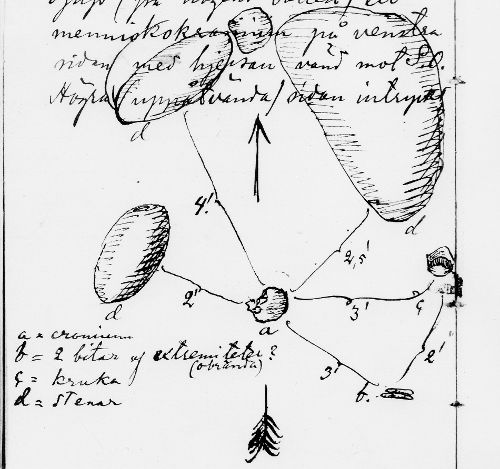 menniskokranium på venstra
sidan med hjessan vänd mot S.O.
Högra (uppåtvända) sidan intryckt
d
4'
d
2,5'
d
2'
a
3'
ç
3'
2'
b.
a = cranium
b = 2 bitar af extremiteter?
(obrända)
ç = kruka
d = stenar